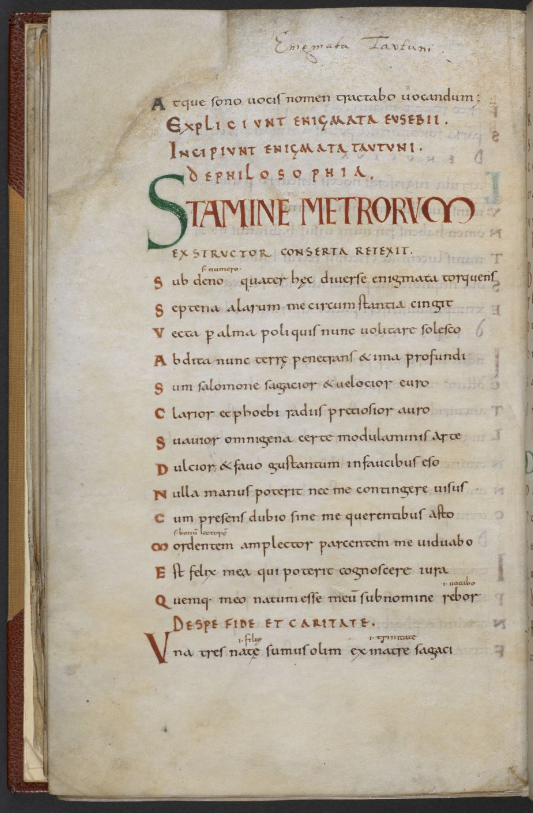 Enigmata Tautuni
Atque sono uocis nomen tractabo uocandum;
EXPLICIVNT ENIGMATA EVSEBII.
INCIPIVNT ENIGMATA TAVTVNI.
DE PHILOSOPHIA.
STAMINE METRORVM
EXSTRVCTOR CONSERTA RETEXIT.
s numero
Sub deno quater hęc diuerse enigmata torquens
Septena alarum me circumstantia cingit
Vecta p alma poli quis nunc uolitare solesco
Abdita nunc terrę penetrans & ima profundi
Sum salomone sagacior & uelocior euro
Clarior et phoebi radiis pretiosior auro
Suauior omnigena certe modulaminis arte
Dulcior & fauo gustantum in faucibus eso
Nulla manus poterit nec me contingere uisus
Cum presens dubio sine me querentibus asto
Mordentem amplector parcentem me uiduabo
Est felix mea qui poterit cognoscere iura
i uocabo
Quemq; meo natum esse meū sub nomine rebor
DE SPE FIDE ET CARITATE.
i filię i trinitate
Vna tres natę sumus olim ex matre sagaci